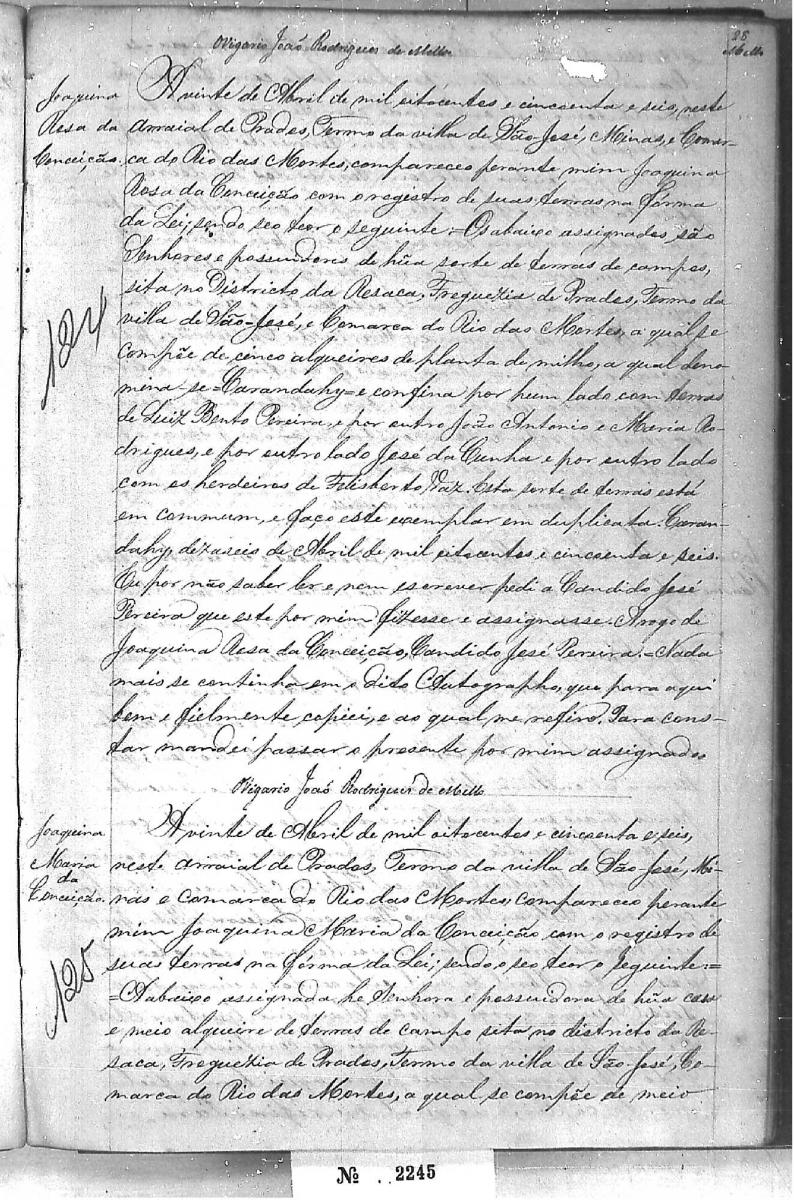 28
Mello
O Vigario João Rodrigues de Mello
Joaquina
Rosa da
Conceição.
124
A vinte de Abril de mil oitocentos e cincoenta e seis, neste
arraial de Prados, Termo da villa de São José, Minas, e Comar-
ca do Rio das Mortes, compareceo perante mim Joaquina
Rosa da Conceição com o registro de suas terras na fórma
da Lei; sendo seo teor o seguinte: = Os abaixo assignados são
Senhores e possuidores de hũa sorte de terras de campos,
sita no Districto da Resaca, Freguezia de Prados, Termo da
villa de São José, e Comarca do Rio das Mortes, a qual se
compõe de cinco alqueires de planta de milho, a qual deno-
mina-se = Carandahy = e confina por hum lado com terras
de Luiz Bento Pereira, e por outro João Antonio e Maria Ro-
drigues, e por outro lado José da Cunha e por outro lado
com os herdeiros de Felisberto Vaz. Esta sorte de terras está
em commum, e faço este exemplar em duplicata. Caran-
dahy, dezaseis de Abril de mil oitocentos e cincoenta e seis.
E por não saber ler e nem escrever pedi a Candido José
Pereira que este por mim fizesse e assignasse. Arogo de
Joaquina Rosa da Conceição, Candido José Pereira. = Nada
mais se continha em o dito Autographo, que para aqui
bem e fielmente copiei, e ao qual me refiro. Para cons-
tar mandei passar o presente por mim assignado
O Vigario João Rodrigues de Mello
Joaquina
Maria
da
Conceição.
125
A vinte de Abril de mil oitocentos e cincoenta e seis,
neste arraial de Prados, Termo da villa de São José, Mi-
nas e Comarca do Rio das Mortes, compareceo perante
mim Joaquina Maria da Conceição com o registro de
suas terras na fórma da Lei; sendo o seo teor o seguinte: =
= A abaixo assignada he Senhora e possuidora de hũa casa
e meio alqueire de terras de campo sita no districto da Re-
saca, Freguezia de Prados, Termo da villa de São José, Co-
marca do Rio das Mortes, a qual se compõe de meio
№ . 2245